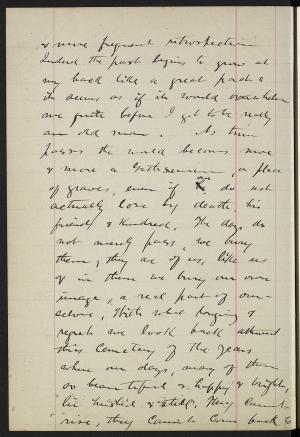 & more frequent retrospection
Indeed the past begins to grow at
my back like a great pack &
it seems as if it would overwhelm
me quite before I get to be really
an old man. As time
passes the world becomes more
& more a Gethsemane, a place
of graves, even if one do not
actually lose by death his
friends & kindred. The days do
not merely pass, we bury
them; they are of us, like us
& in them we bury our own
image, a real part of our-
selves. With what longing &
regret we look back upon
this cemetery of the years
where our days, many of them
so beautiful & happy & bright,
lie hushed & still. They cannot
rise, they cannot come back to